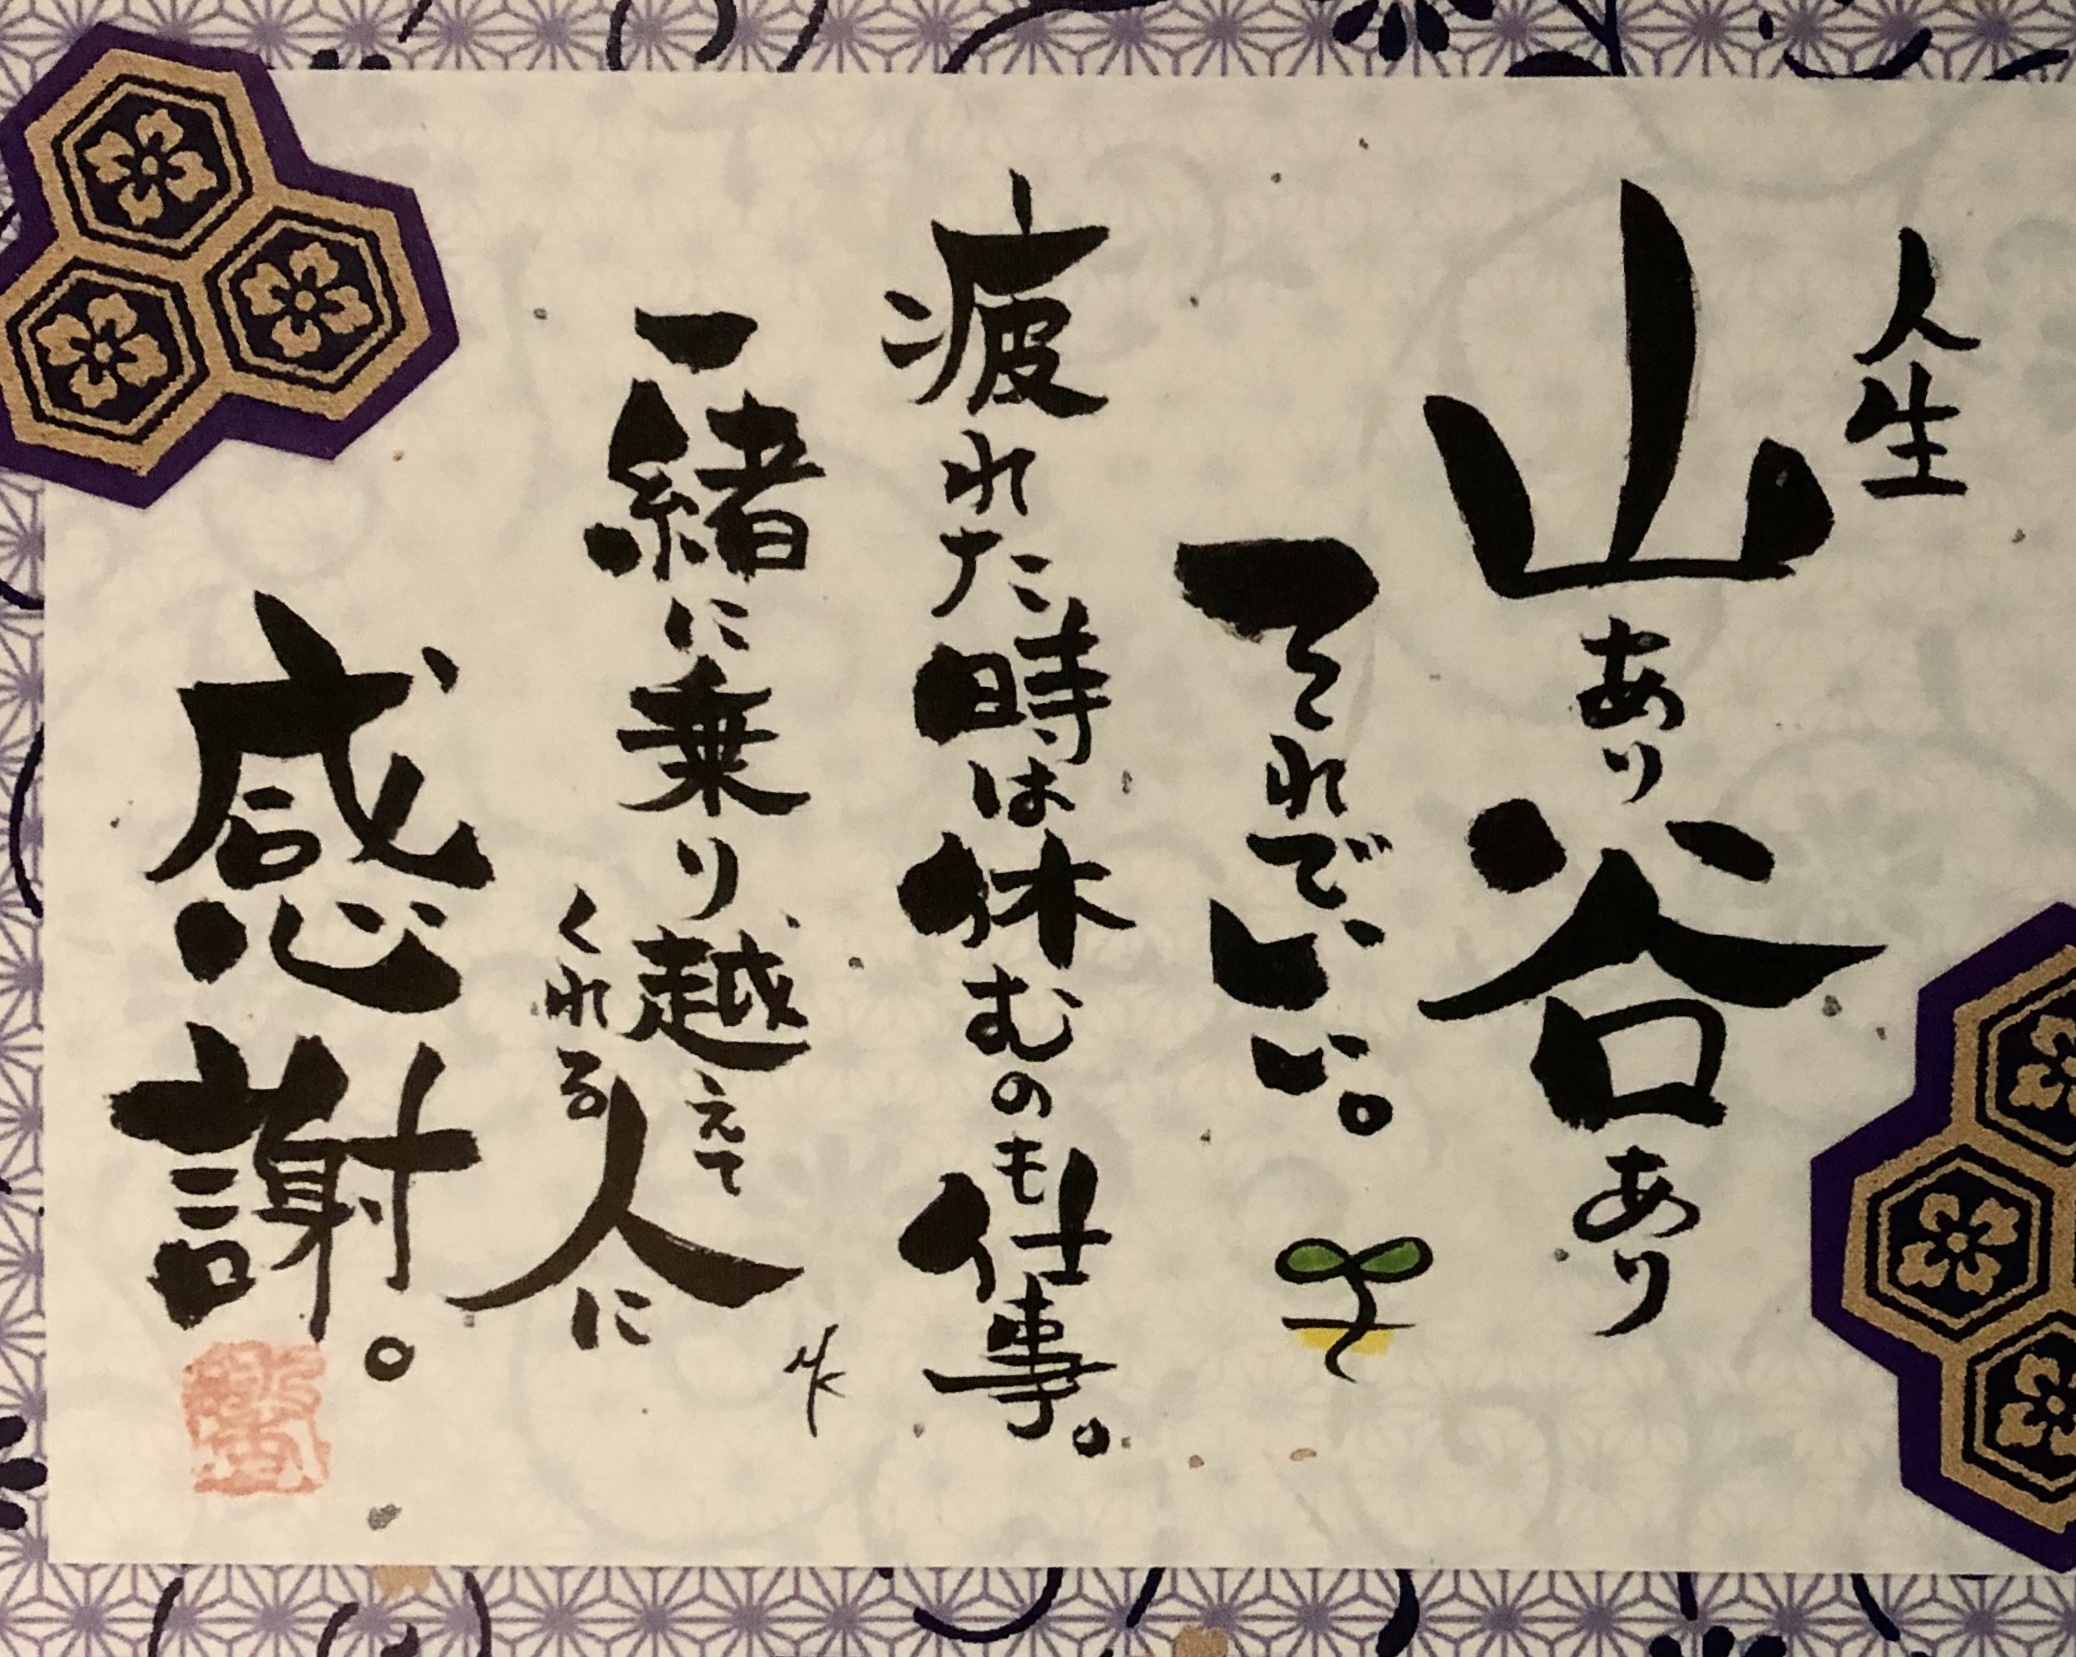 人生
山あり谷あり
それでいい。
疲れた時は休むのも仕事。
一緒に乗り越えて
くれる人に
感謝。